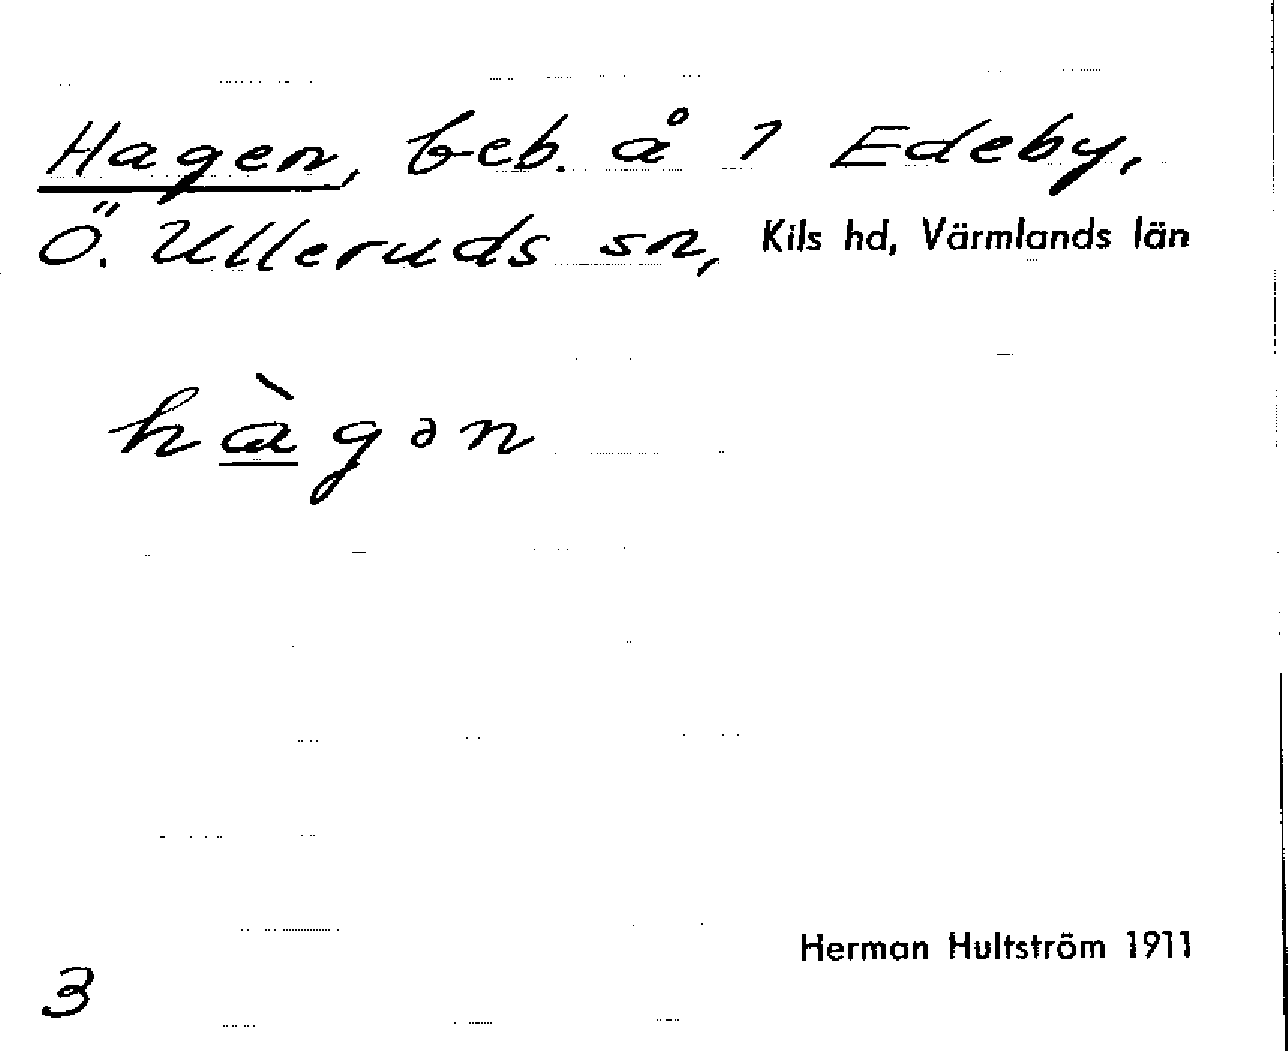 Hagen, beb. å 1 Edeby,
Ö. Ulleruds sn, Kils hd, Värmlands län
hàgən
Herman Hultström 1911
3